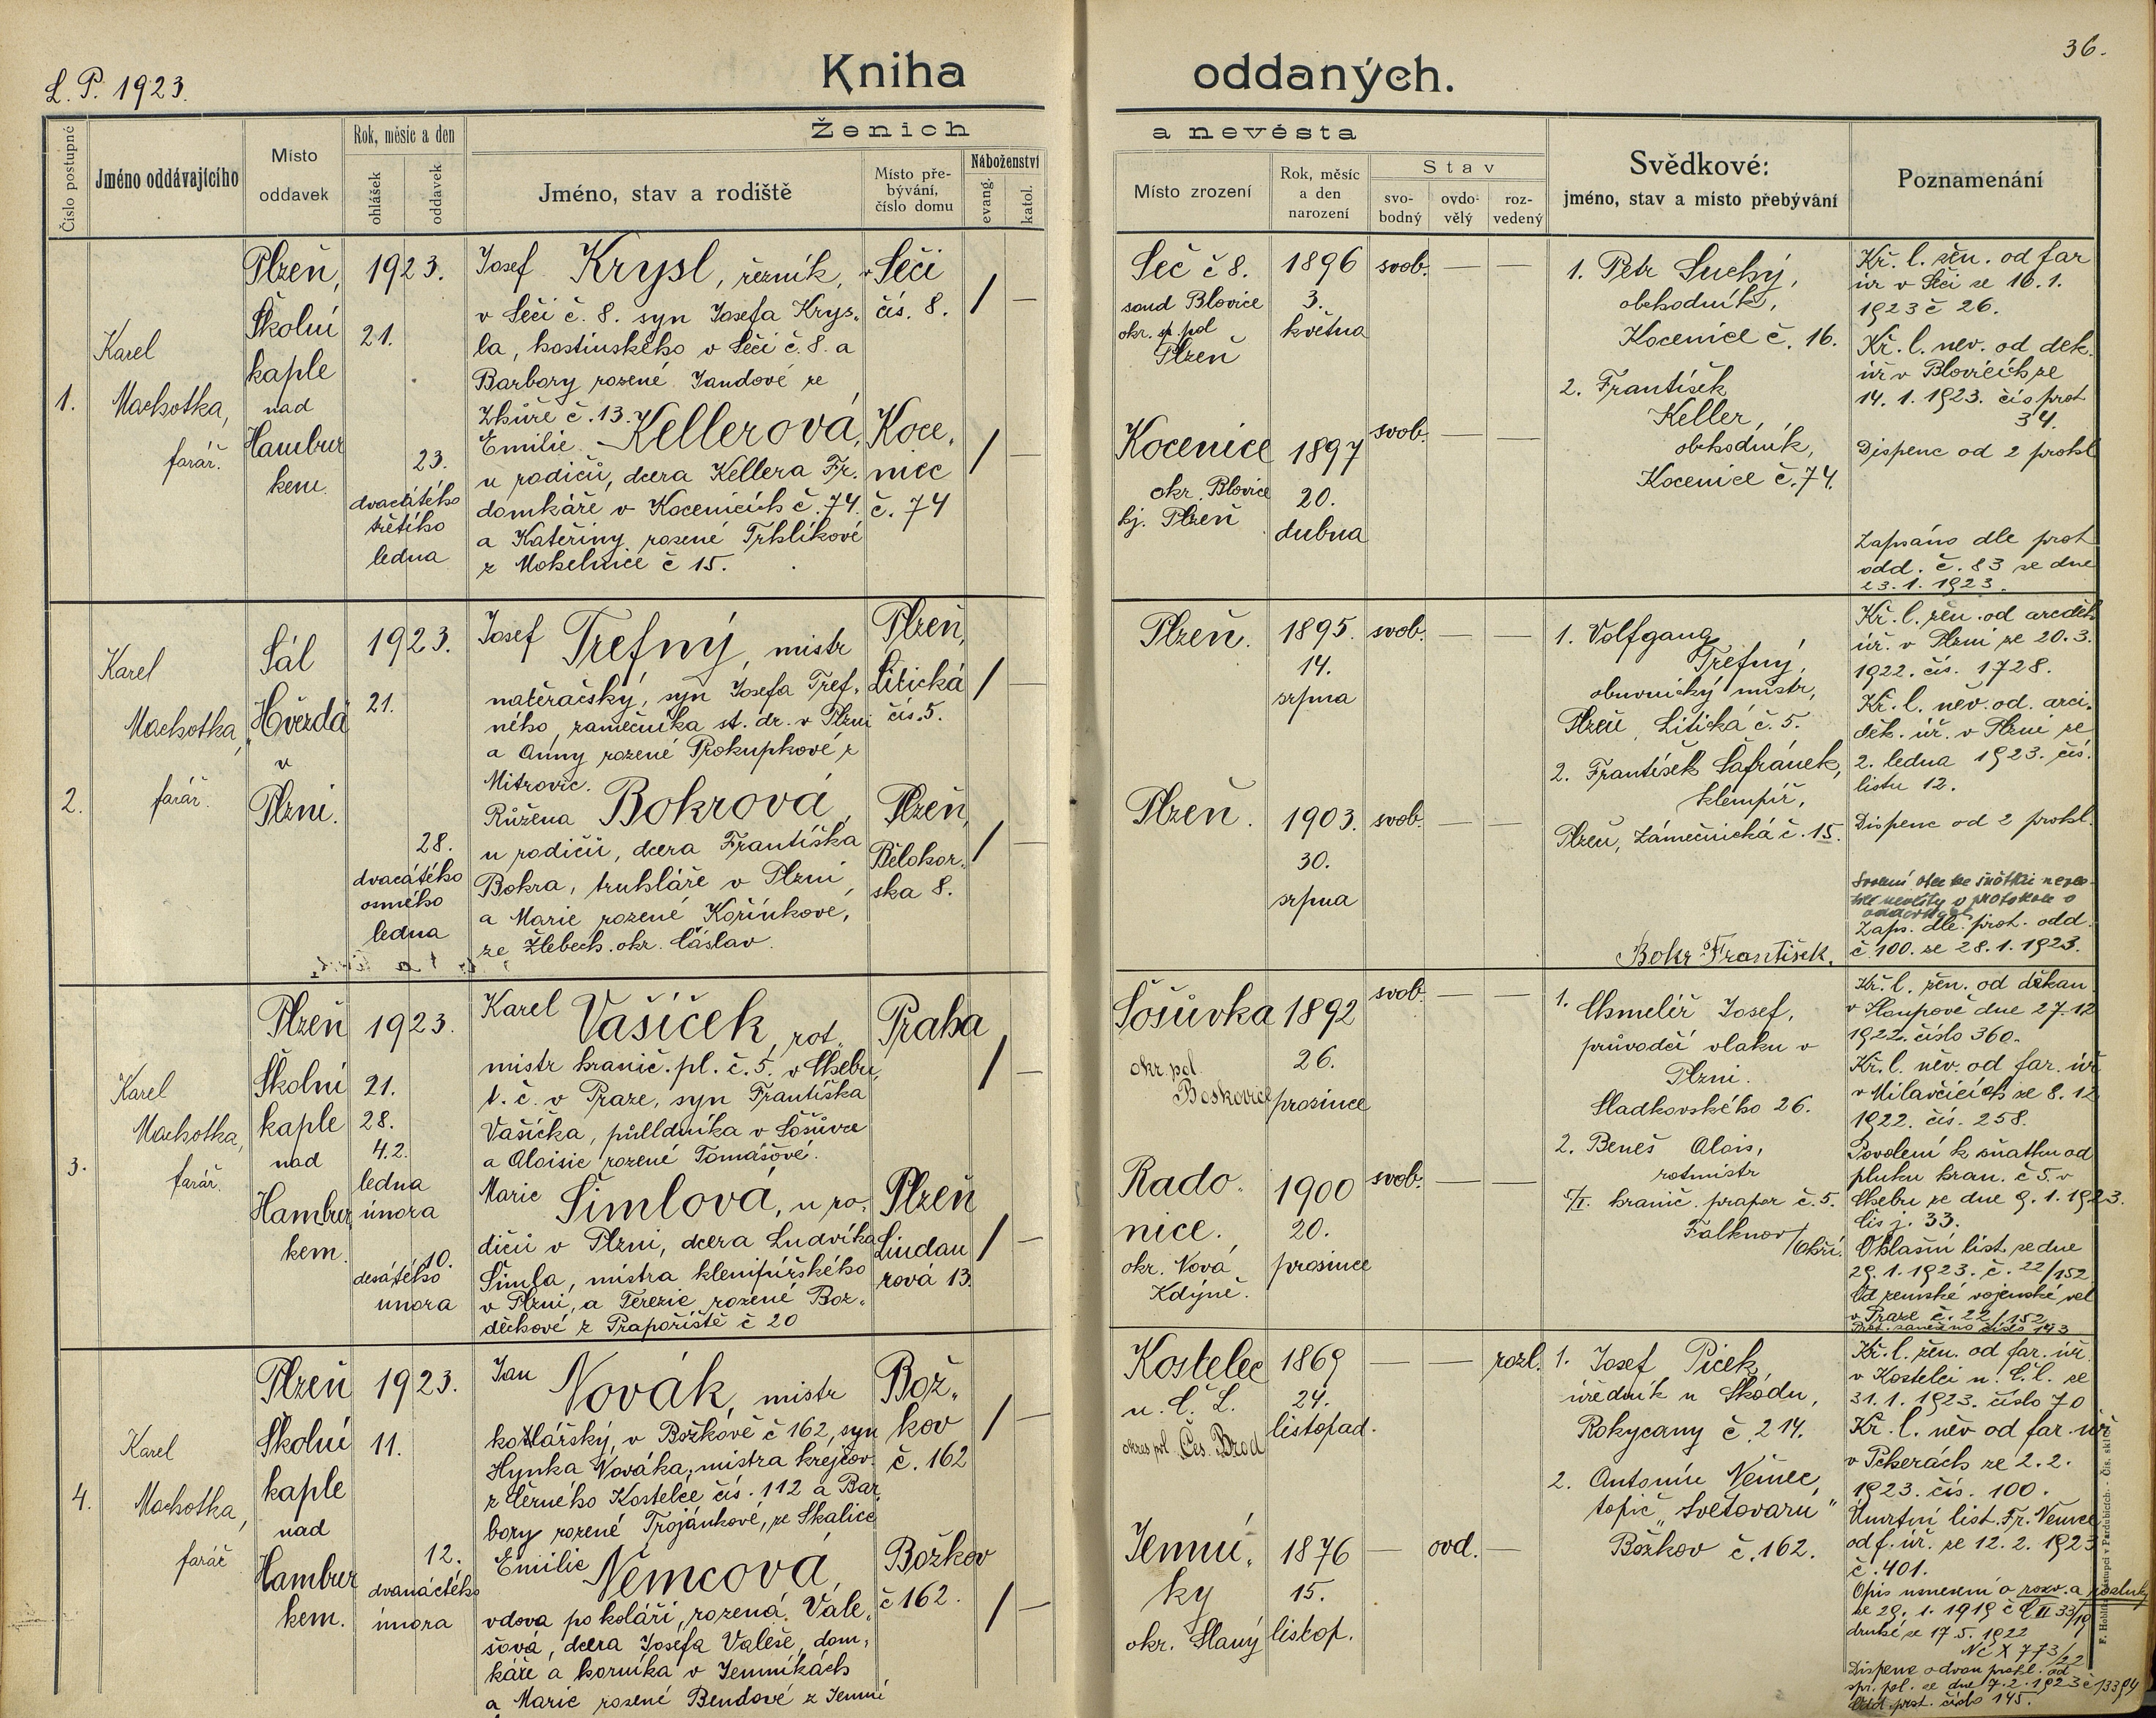 L. P. 1923.
Kniha
oddaných.
36.
Číslo postupné
Jméno oddávajícího
Místo
oddavek
Rok, měsíc a den
ohlášek
oddavek
Ženich
Jméno, stav a rodiště
Místo pře-
bývání,
číslo domu
Náboženství
evang.
katol.
a nevěsta
Místo zrození
Rok, měsíc
a den
narození
Stav
svo-
bodný
ovdo-
vělý
roz-
vedený
Svědkové:
jméno, stav a místo přebývání
Poznamenání
1.
Karel
Machotka,
farář.
Plzeň,
Školní
kaple
nad
Hambur
kem.
1923.
21.
23.
dvacátého
třetího
ledna
Josef Krysl, řezník,
v Séči č. 8. syn Josefa Krys-
la, hostinského v Séči č. 8. a
Barbory rozené Jandové ze
Zhůře č. 13.
Emilie Kellerová,
u rodičů, dcera Kellera Fr.
domkáře v Kocenicích č. 74.
a Kateřiny rozené Trhlíkové
z Mohelnice č 15.
Séči
čís. 8.
/ —
Koce-
nice
č. 74
/ —
Seč č 8.
soud Blovice
okr. sp. pol
Plzeň
1896
3.
května
svob. — —
Kocenice
okr. Blovice
hj. Plzeň
1897
20.
dubna
svob. — —
1. Petr Suchý,
obchodník,
Kocenice č. 16.
2. František
Keller,
obchodník,
Kocenice č. 74.
Kř. l. žen. od far
úř v Séči ze 16. 1.
1923 č 26.
Kř. l. nev. od dek.
úř v Blovicích ze
14. 1. 1923. čís prot
34.
Dispenc od 2 prohl
Zapsáno dle prot
odd. č. 83 ze dne
23. 1. 1923.
2.
Karel
Machotka,
farář.
Sál
„Hvězda"
v
Plzni.
1923.
21.
28.
dvacátého
osmého
ledna
Josef Trefný, mistr
natěračský, syn Josefa Tref-
ného, zámečníka st. dr. v Plzni
a Anny rozené Prokupkové z
Mitrovic.
Růžena Bokrová,
u rodičů, dcera Františka
Bokra, truhláře v Plzni,
a Marie rozené Kořínkove,
ze Žlebech. okr. Čáslav.
Plzeň,
Litická
čís. 5.
/ —
Plzeň,
Bělohor-
ska 8.
/ —
Plzeň.
1895.
14.
srpna
svob. — —
Plzeň.
1903.
30.
srpna
svob. — —
1. Volfgang
Trefný,
obuvnický mistr,
Plzeň, Litická č. 5.
2. František Šafránek,
klempíř,
Plzeň, Zámečnická č. 15.
Bokr František.
Kř. l. žen. od arciděk
úř. v Plzni ze 20. 3.
1922. čís. 1728.
Kř. l. nev. od. arci-
děk. úř. v Plzni ze
2. ledna 1923. čís.
listu 12.
Dispenc od 2 prohl.
Zaps. dle. prot. odd.
č. 100. ze 28. 1. 1923.
3.
Karel
Machotka,
farář.
Plzeň
Školní
kaple
nad
Hambur
kem.
1923.
21.
28.
4.2.
ledna
února
10.
desátého
unora
Karel Vašíček, rot-
mistr hranič. pl. č. 5. v Chebu,
t. č. v Praze, syn Františka
Vašíčka, půlldníka v Šošůvce
a Aloisie rozené Tomášové.
Marie Šimlová, u ro-
dičů v Plzni, dcera Ludvíka
Šimla, mistra klempířského
v Plzni, a Terezie rozené Boz-
děchové z Prapořiště č 20
Praha
/ —
Plzeň
Lindau
rová 13.
/ —
Šošůvka
okr. pol.
Boskovice
1892
26.
prosince
svob. — —
Rado-
nice.
okr. Nová
Kdýně.
1900
20.
prosince
svob. — —
1. Chmelíř Josef,
průvodčí vlaku v
Plzni.
Sladkovského 26.
2. Beneš Alois,
rotmistr
5/I. hranič. prapor č. 5.
Falknov /Ohří.
Kř. l. žen. od děkan
v Sloupově dne 27. 12
1922. číslo 360.
Kř. l. něv. od far. úř
v Milavčicích ze 8. 12
1922. čís. 258.
Povolení k sňatku od
pluku hran. č 5. v
Chebu ze dne 9. 1. 1923.
čís j. 33.
Ohlašní list ze dne
29. 1. 1923. č. 22/152
Od zemské vojenské vel
v Praze č. 22/152
Prot. zaneseno číslo 143
4.
Karel
Machotka,
farář
Plzeň
Školní
kaple
nad
Hambur
kem.
1923.
11.
12.
dvanáctého
února
Jan Novák, mistr
kotlářský, v Božkově č 162, syn
Hynka Nováka, mistra krejčov.
z Černého Kostelce čís. 112 a Bar-
bory rozené Trojánkové, ze Skalice
Emilie Němcová,
vdova po koláři, rozená Vale-
šová, dcera Josefa Valeše, dom-
káře a horníka v Jemníkách
a Marie rozené Bendové z Jemní
Bož-
kov
č. 162
/ —
Božkov
č 162.
/ —
Kostelec
n. Č. L.
okres pol. Čes. Brod
1869
24.
listopad.
— — rozl.
Jemní-
ky
okr. Slaný
1876
15.
listop.
— ovd. —
1. Josef Picek,
úředník u Škodu,
Rokycany č. 214.
2. Antonín Němec,
topič „Světovaru"
Božkov č. 162.
Kř. l. žen. od far. úř
v Kostelci n. Č. L. ze
31. 1. 1923. číslo 70
Kř. l. něv od far. úř
v Pcherách ze 2. 2.
1923. čís. 100.
Úmrtní list Fr. Němce
od f. úř. ze 12. 2. 1923
č. 401.
Opis usnesení o rozv. a rozluky
ze 29. 1. 1919 č C II 33/19
druhé ze 17. 5. 1922
Nc X 773/22
Dispenc o dvou prohl. od
spr. pol. ze dne 7. 2. 1923 č 13394
Odd. prot. číslo 145.